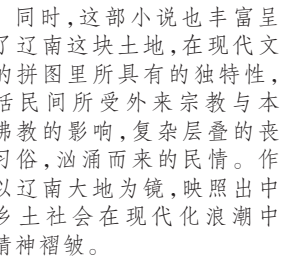 同时，这部小说也丰富呈
了辽南这块土地，在现代文
的拼图里所具有的独特性，
括民间所受外来宗教与本
佛教的影响，复杂层叠的丧
习俗，汹涌而来的民情。作
以辽南大地为镜，映照出中
乡土社会在现代化浪潮中
精神褶皱。